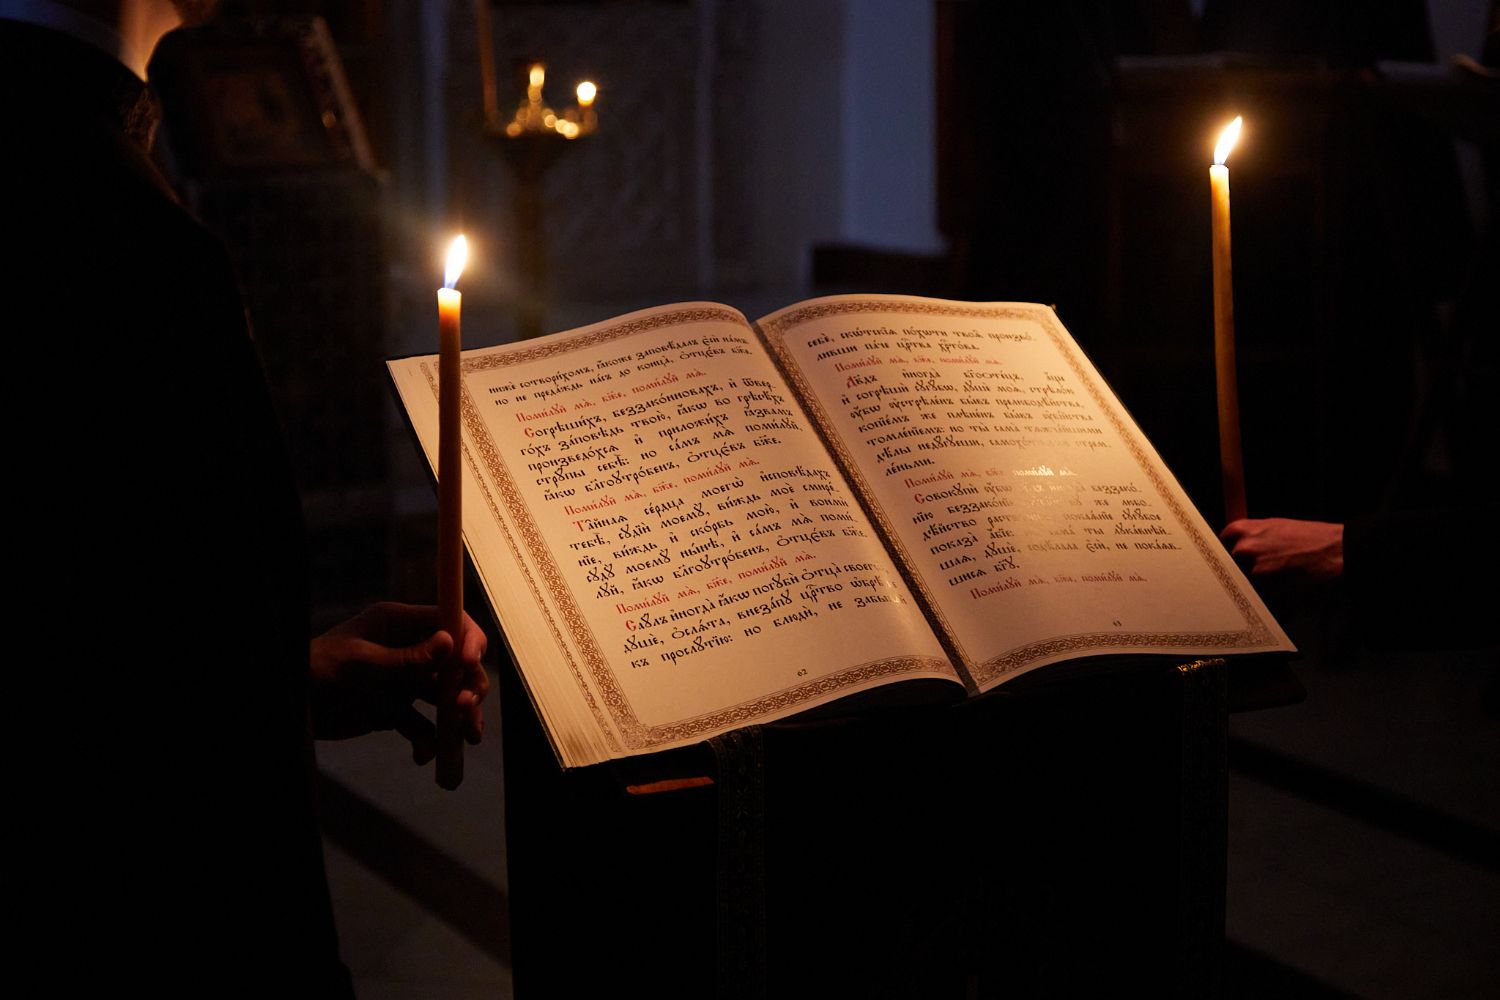 нижѐ сотвори́хомъ, ꙗ҆́коже заповѣ́далъ є҆сѝ на́мъ.
но не преда́ждь на́съ до конца̀, ѻ҆тцє́въ бж҃е.
Поми́лꙋй мѧ̀, бж҃е, поми́лꙋй мѧ̀.
Согрѣши́хъ, беззако́нновахъ, и҆ ѿверго́хъ
за́повѣдь твою̀, ꙗ҆́кѡ во грѣсѣ́хъ
произведо́хсѧ и҆ приложи́хъ ꙗ҆́звамъ
стрꙋ́пы себѣ̀: но са́мъ мѧ̀ поми́лꙋй,
ꙗ҆́кѡ благоꙋтро́бенъ, ѻ҆тцє́въ бж҃е.
Поми́лꙋй мѧ̀, бж҃е, поми́лꙋй мѧ̀.
Та̑йнаѧ се́рдца моегѡ̀ и҆сповѣ́дахъ
тебѣ̀, сꙋдїѝ моемꙋ̀, ви́ждь моѐ смире́нїе,
ви́ждь и҆ ско́рбь мою̀, и҆ вонмѝ
сꙋдꙋ̀ моемꙋ̀ ны́нѣ, и҆ са́мъ мѧ̀ поми́лꙋй,
ꙗ҆́кѡ благоꙋтро́бенъ, ѻ҆тцє́въ бж҃е.
Поми́лꙋй мѧ̀, бж҃е, поми́лꙋй мѧ̀.
Саꙋ́лъ и҆ногда̀ ꙗ҆́кѡ погꙋбѝ ѻ҆тца̀ своегѡ̀
дꙋшѐ, ѻ҆слѧ́та, внеза́пꙋ црⷭ҇тво ѡ҆брѣ́те
къ прослꙋ́тїю: но блюдѝ, не забыва́й
62
себѐ, скѡ́тскїѧ по́хѡти твоѧ̑ произво́ливши
па́че црⷭ҇тва хрⷭ҇то́ва.
Поми́лꙋй мѧ̀, бж҃е, поми́лꙋй мѧ̀.
Дв҃дъ и҆ногда̀ бг҃ооте́цъ, а҆́ще
и҆ согрѣшѝ сꙋгꙋ́бѡ, дꙋшѐ моѧ̀, стрѣло́ю
ᲂу҆́бѡ ᲂу҆стрѣле́нъ бы́въ прелюбодѣ́йства,
копїе́мъ же плѣне́нъ бы́въ ᲂу҆бі́йства
томле́нїемъ: но ты̀ сама̀ тѧжча́йшими
дѣ́лы недꙋ́гꙋеши, самохо́тными стремле́ньми.
Поми́лꙋй мѧ̀, бж҃е, поми́лꙋй мѧ̀.
Совокꙋпѝ ᲂу҆́бѡ беззако́нїю
беззако́нїе же
показа̀ а҆́бїе: сама̀ ты̀
дꙋшѐ, є҆сѝ, не пока́ѧвшисѧ
бг҃ꙋ.
Поми́лꙋй мѧ̀, бж҃е, поми́лꙋй мѧ̀.
63